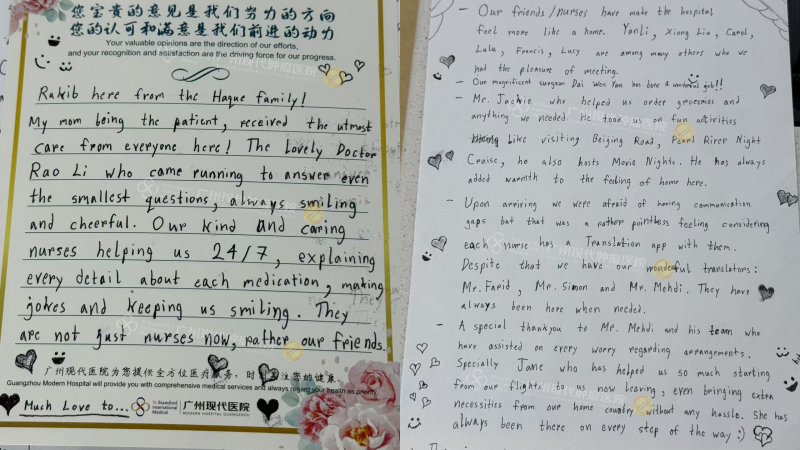 您宝贵的意见是我们努力的方向
您的认可和满意是我们前进的动力
Your valuable opinions are the direction of our efforts,
and your recognition and satisfaction are the driving force for our progress.
Rakib here from the Haque family!
My mom being the patient, received the utmost
care from everyone here! The Lovely Doctor
Rao Li who came running to answer even
the smallest questions, always smiling
and cheerful. Our kind and caring
nurses helping us 24/7, explaining
every detail about each medication, making
jokes and keeping us smiling. They
are not just nurses now, rather our friends.
广州现代医院为您提供全方位医疗服务，时 关注您的健康
Guangzhou Modern Hospital will provide you with comprehensive medical services and always regard your health as priority.
Much Love to...
St. Stamford International Medical
广州现代医院
MODERN HOSPITAL GUANGZHOU
- Our friends/nurses have made the hospital
feel more like a home. YanLi, Xiong Lia, Carol,
Lulu, Francis, Lucy are among many others who we
had the pleasure of meeting.
- Our magnificent surgeon Dai Wen Yan has done a wonderful job!!
- Mr. Jackie who helped us order groceries and
anything we needed. He took us on fun activities
like visiting Beijing Road, Pearl River Night
Cruise, he also hosts Movie Nights. He has always
added warmth to the feeling of home here.
- Upon arriving we were afraid of having communication
gaps but that was a rather pointless feeling considering
each nurse has a Translation app with them.
Despite that we have our wonderful translators:
Mr. Farid, Mr. Simon and Mr. Mehdi. They have
always been here when needed.
- A special thankyou to Mr. Mehdi and his team who
have assisted on every worry regarding arrangements.
Specially Jane who has helped us so much starting
from our flights to us now leaving, even bringing extra
necessities from our home country without any hassle. She has
always been there on every step of the way :)
广州现代肿瘤医院